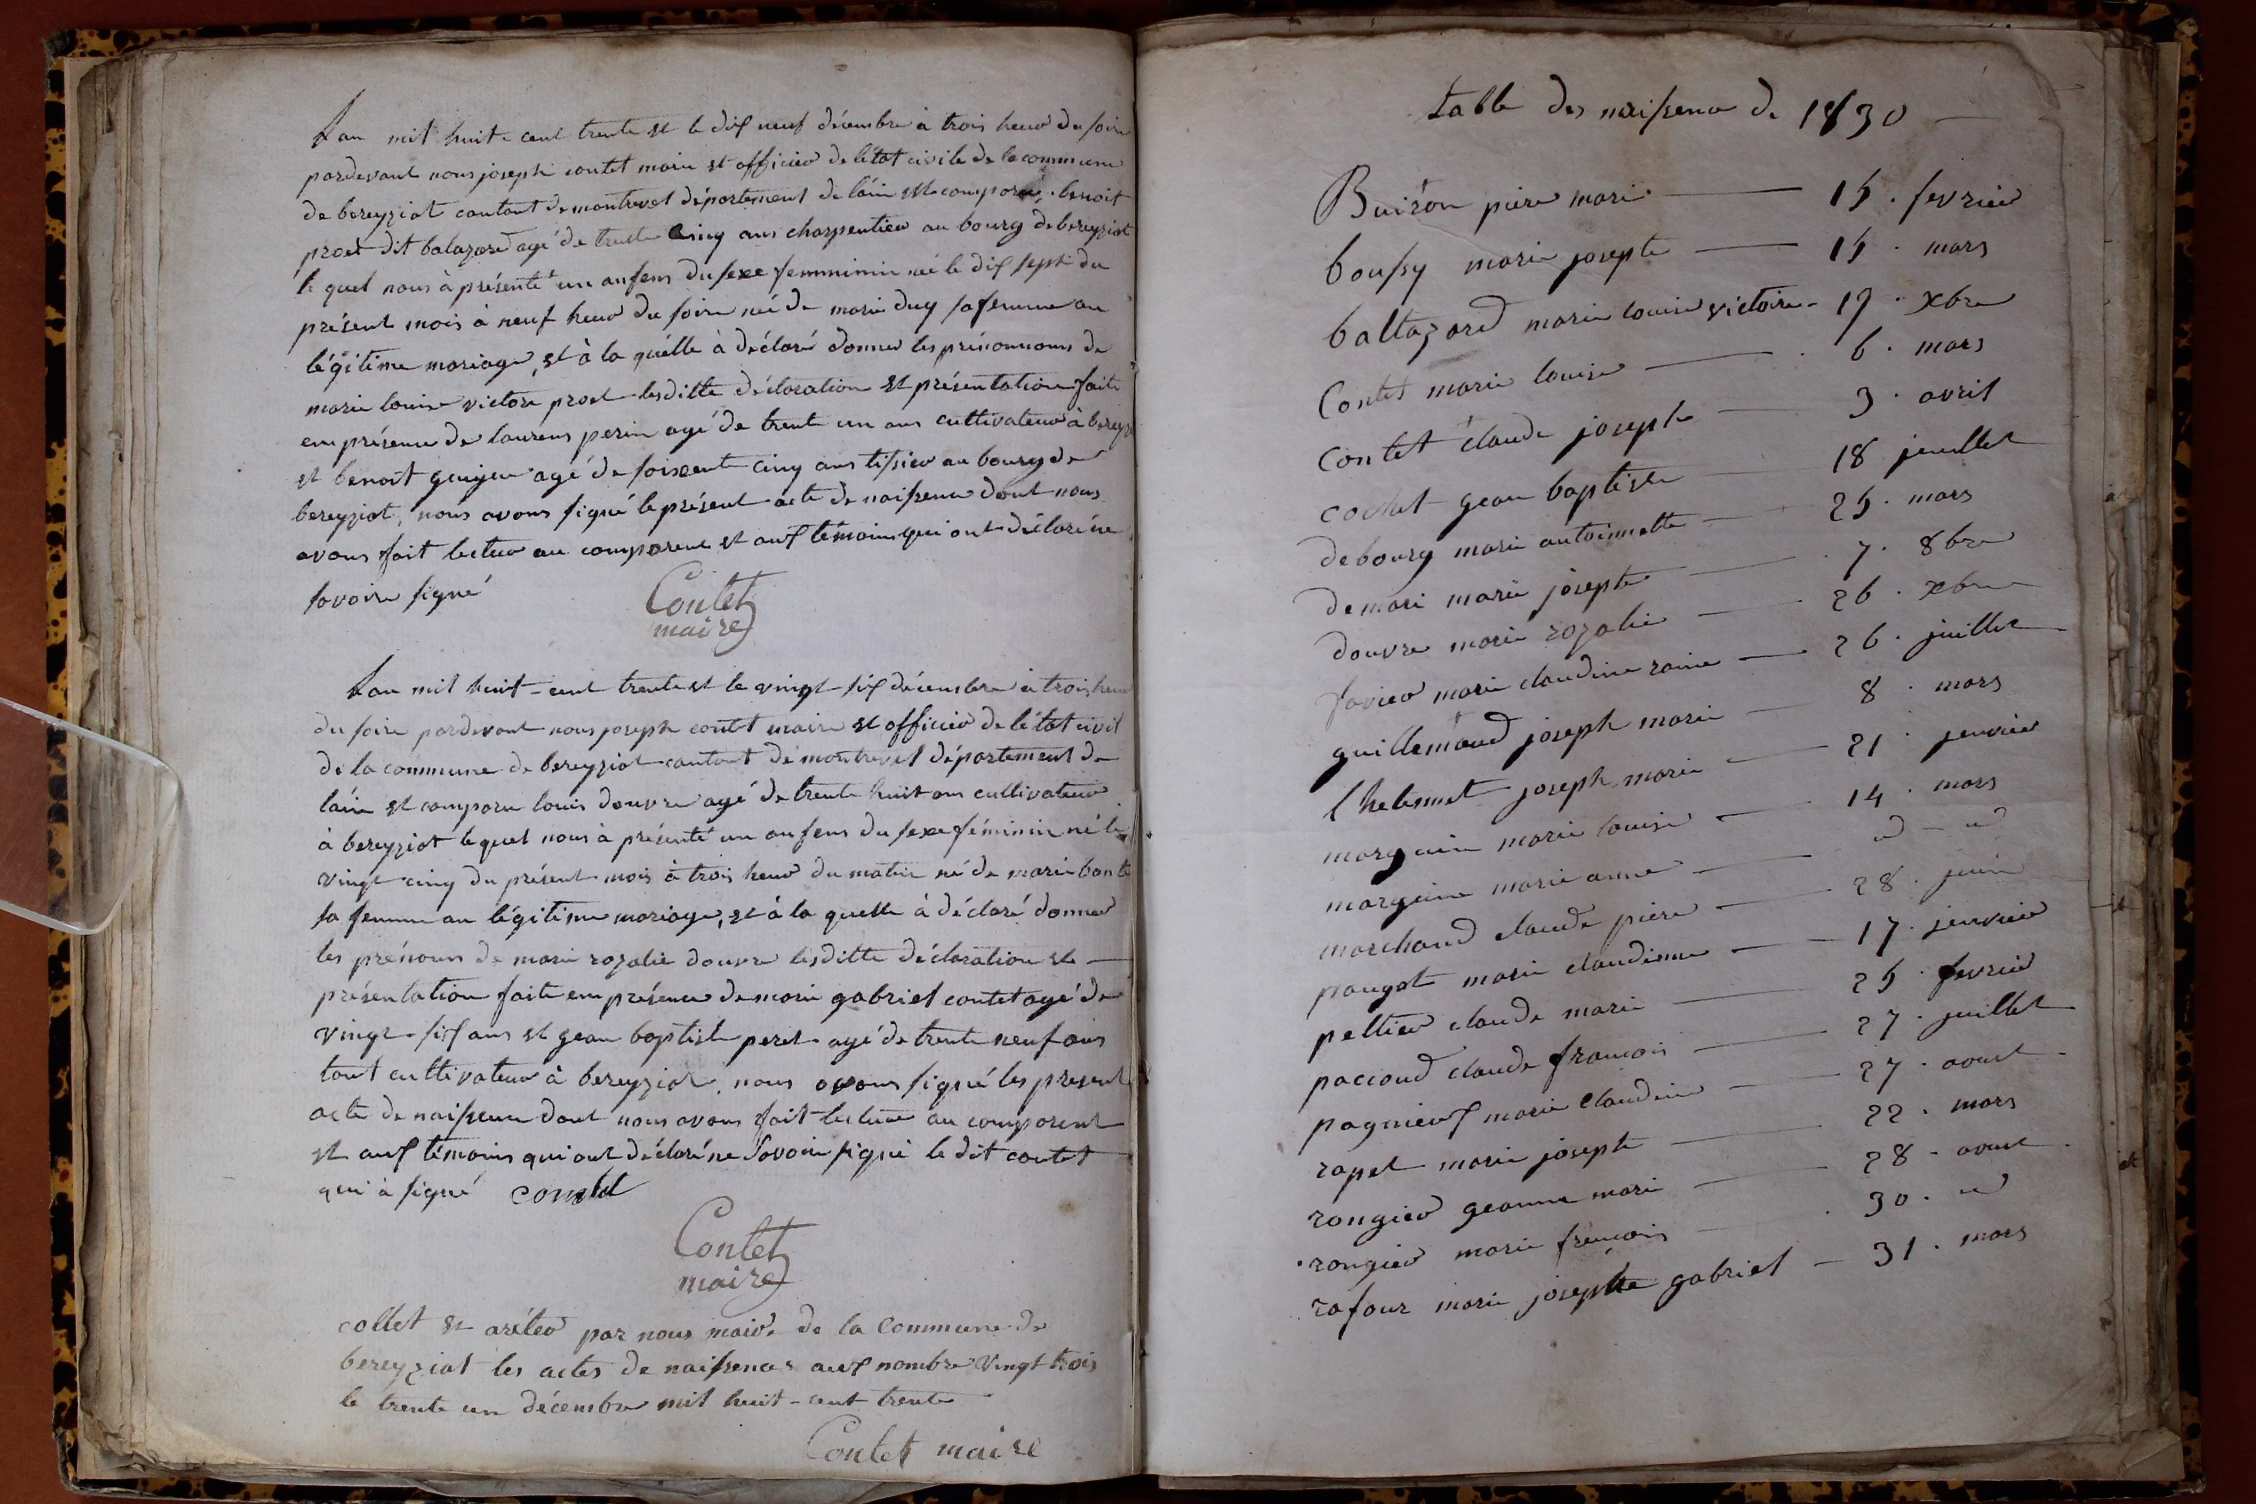 Lan mil huit-cent trente et le dix neuf décembre à trois heur du soire
pardevant nous joseph contet maire et officier de létat civile de la commune
de bereyziat cantont de montrevel département de láin est comparu benoit
prost dit balazard agé de trente Cinq ans charpentier au bourg de bereyziat
le quel nous à présenté un anfens du sexe femminin né le dix sept du
présent mois à neuf heur du soire né de marie duy sa femme an
légitime mariage, et à la quélle à déclaré donner les prénomms de
marie louise victore prost lesditte déclaration et présentation faite
em présence de laurens perin agé de trente un ans cultivateur à bereyz
et benoit agé de soixent cinq ans tissier au bourg de
bereyziat, nous avons signé le présent acte de naissence dont nous
avons fait lectur au comparent et aux témoins qui ont déclaré ne
savoire signé
Contet
maire
Lan mil huit-cent trente et le vingt-six décembre à trois heur
du soire pardevant nous joseph contet maire et officier de létat civil
de la commune de bereyziat cantont de montrevel département de
láin et comparu louis douvre agé de trente huit ans cultivateur
à bereyziat le quel nous à présenté un anfens du sexe féminin né le
vingt cinq du présent mois à trois heur du matin né de marie bonte
sa femme an légitime mariage, et à la quelle à déclaré donner
les prénoms de marie rozalie douvre lesditte déclaration et
présentation faite em présence de marie gabriel contet agé de
vingt-six ans et gean baptiste peret agé de trente neuf ans
tout cultivateur à bereyziat, nous avons signé les present
acte de naissence dont nous avons fait lecture au comparent
et aux témoins qui ont déclaré ne savoir signé le dit contet
qui à signé contet
Contet
maire
collet et aréter par nous maire de la Commune de
bereyziat les actes de naissences aux nombre Vingt trois
le trente un décembre mil huit-cent trente
Contet maire
table des naissence de 1830
Buiron piere marie 15. fevrier
boussy marie josepte 15. mars
baltazard marie louise victoire 19. xbre
Contet marie louise 6. mars
contet claude joseph 3. avril
cochet gean baptiste 18 jeuillet
debourg marie antoinette 25. mars
demari marie josepte 7. 8bre
douvre marie rozalie 26. xbre
favier marie claudine raine 26. juillet
guillemaud joseph marie 8. mars
lhelemet joseph marie 21. jenvier
marguin marie louise 14. mars
marguin marie anne
marchand claude piere 28. juin
paugot marie claudinne 17. jenvier
peltier claude marie 25. fevrier
paccoud claude francois 27. juillet
pagnieux marie Claudine 27. aout
rapet marie josepte 22. mars
rongier geanne marie 28. aout
rongier marie frencois 30.
rafour marie josephe gabriel 31. mars